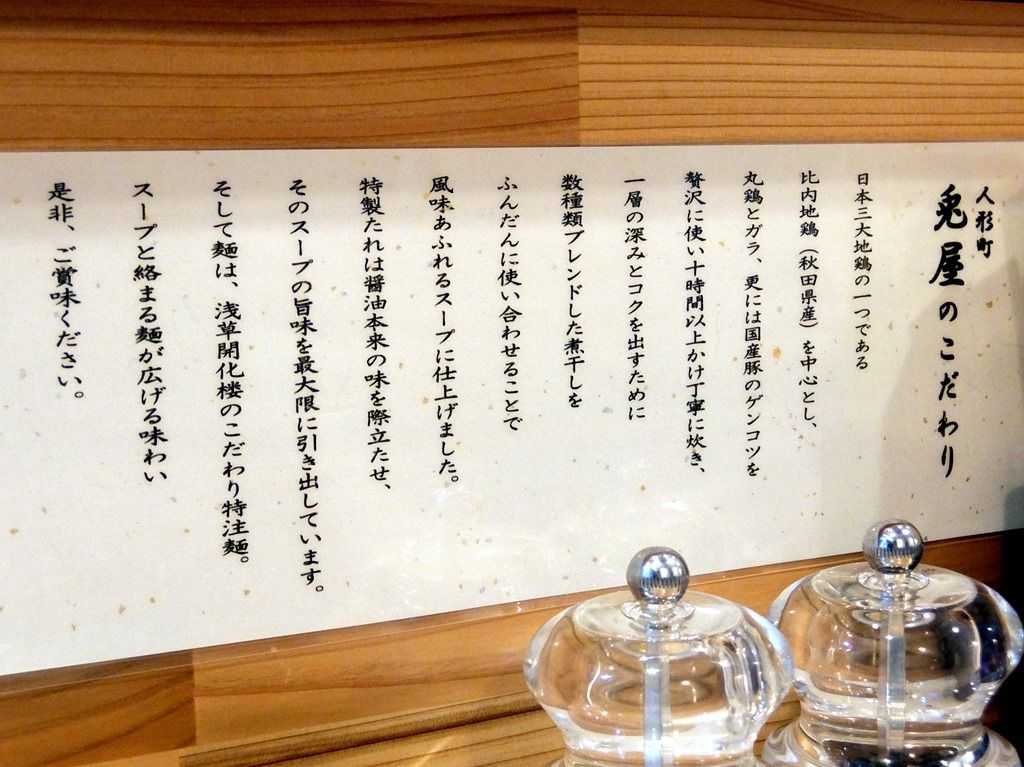 人形町
兎屋のこだわり
日本三大地鶏の一つである
比内地鶏（秋田県産）を中心とし、
丸鶏とガラ、更には国産豚のゲンコツを
贅沢に使い十時間以上かけ丁寧に炊き、
一層の深みとコクを出すために
数種類ブレンドした煮干しを
ふんだんに使い合わせることで
風味あふれるスープに仕上げました。
特製たれは醤油本来の味を際立たせ、
そのスープの旨味を最大限に引き出しています。
そして麺は、浅草開化楼のこだわり特注麺。
スープと絡まる麺が広げる味わい
是非、ご賞味ください。